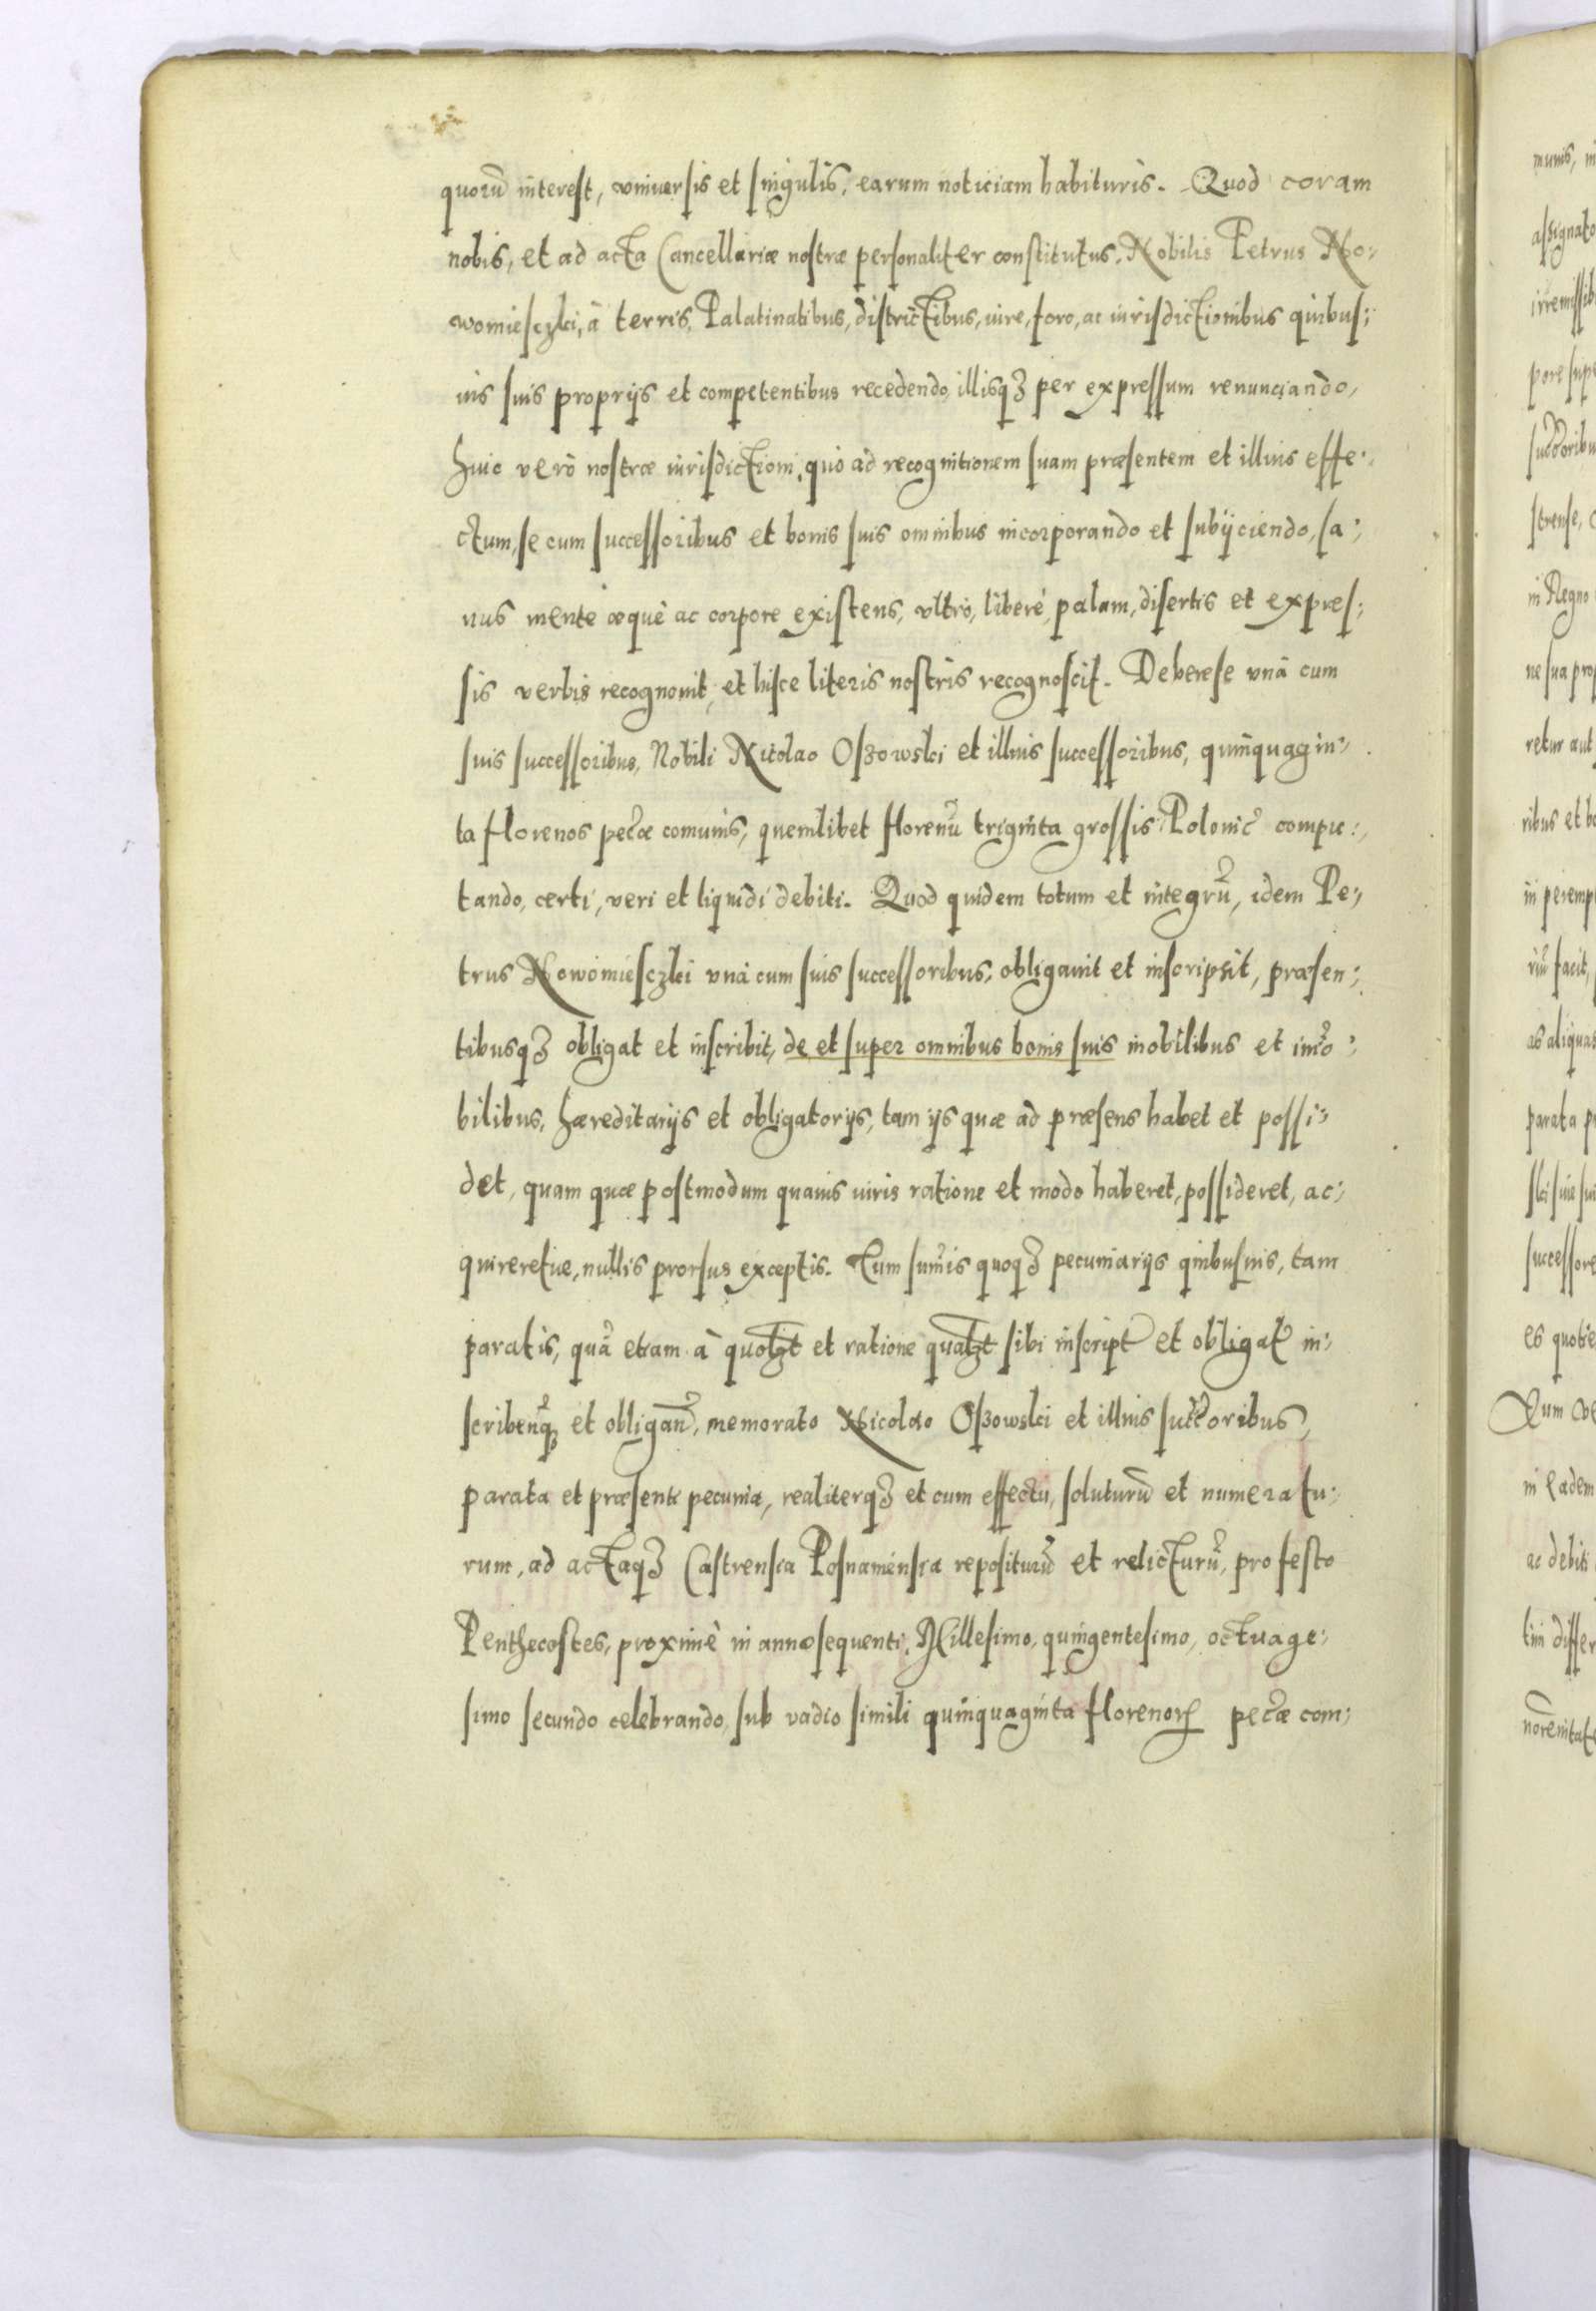 quorũ interest, vniuersis et singulis, earum noticiam habituris. Quod coram
nobis, et ad acta Cancellariæ nostræ personaliter constitutus, Nobilis Petrus No:
womiesczki, à terris, Palatinatibus, districtibus, iure, foro, ac iurisdictionibus quibus:
uis suis proprijs et competentibus recedendo, illisqꝫ per expressum renunciando,
huic verò nostræ iurisdictioni, quo ad recognitionem suam præsentem et illius effe:
ctum, se cum successoribus et bonis suis omnibus incorporando et subijciendo, sa:
nus mente æquè ac corpore existens, vltrò, liberè, palam, disertis et expres:
sis verbis recognouit, et hisce literis nostris recognoscit. Deberese vnà cum
suis successoribus, Nobili Nicolao Oszowski et illius successoribus, quinquagin:
ta florenos pecȃe comunis, quemlibet florenũ triginta grossis Polonic̃ compu:
tando, certi, veri et liquidi debiti. Quod quidem totum et integrũ, idem Pe:
trus Nowomiesczki vnà cum suis successoribus, obligauit et inscripsit, præsen:
tibusqꝫ obligat et inscribit, de et super omnibus bonis suis mobilibus et im̃o:
bilibus, hæreditarijs et obligatorijs, tam ijs quæ ad præsens habet et possi:
det, quam quæ postmodum quauis iuris ratione et modo haberet, possideret, ac:
quireretue, nullis prorsus exceptis. Tum sum̃is quoqꝫ pecuniarijs quibusuis, tam
paratis, quã etiam à quolꝫt et ratione qualꝫt sibi inscript̃ et obligat̃ in:
scribenqꝫ et obligan̄d, memorato Nicolao Oszowski et illius succ̃oribus,
parata et præsenti pecunia, realiterqꝫ et cum effectu, soluturũ et numeratu:
rum, ad actaqꝫ Castrensia Posnaniensia repositurũ et relicturũ, pro festo
Penthecostes, proximè in anno sequenti, Millesimo, quingentesimo, octuage:
simo secundo celebrando, sub vadio simili quinquaginta florenorꝝ pec̃æ com: